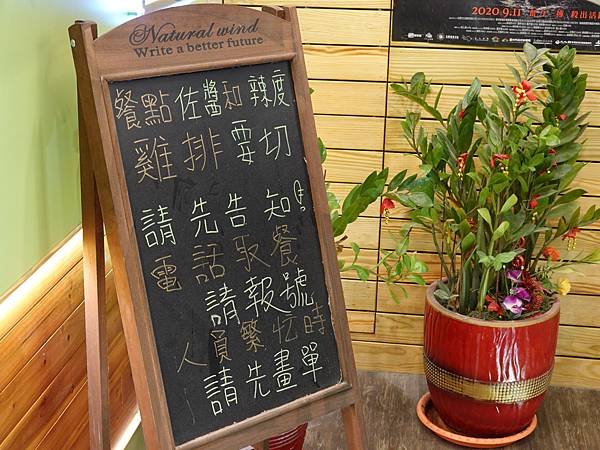 Natural wind
Write a better future
餐點佐醬和辣度
雞排要切
請先告知
電話取餐
請報號
人員繁忙時
請先畫單
2020.9.11